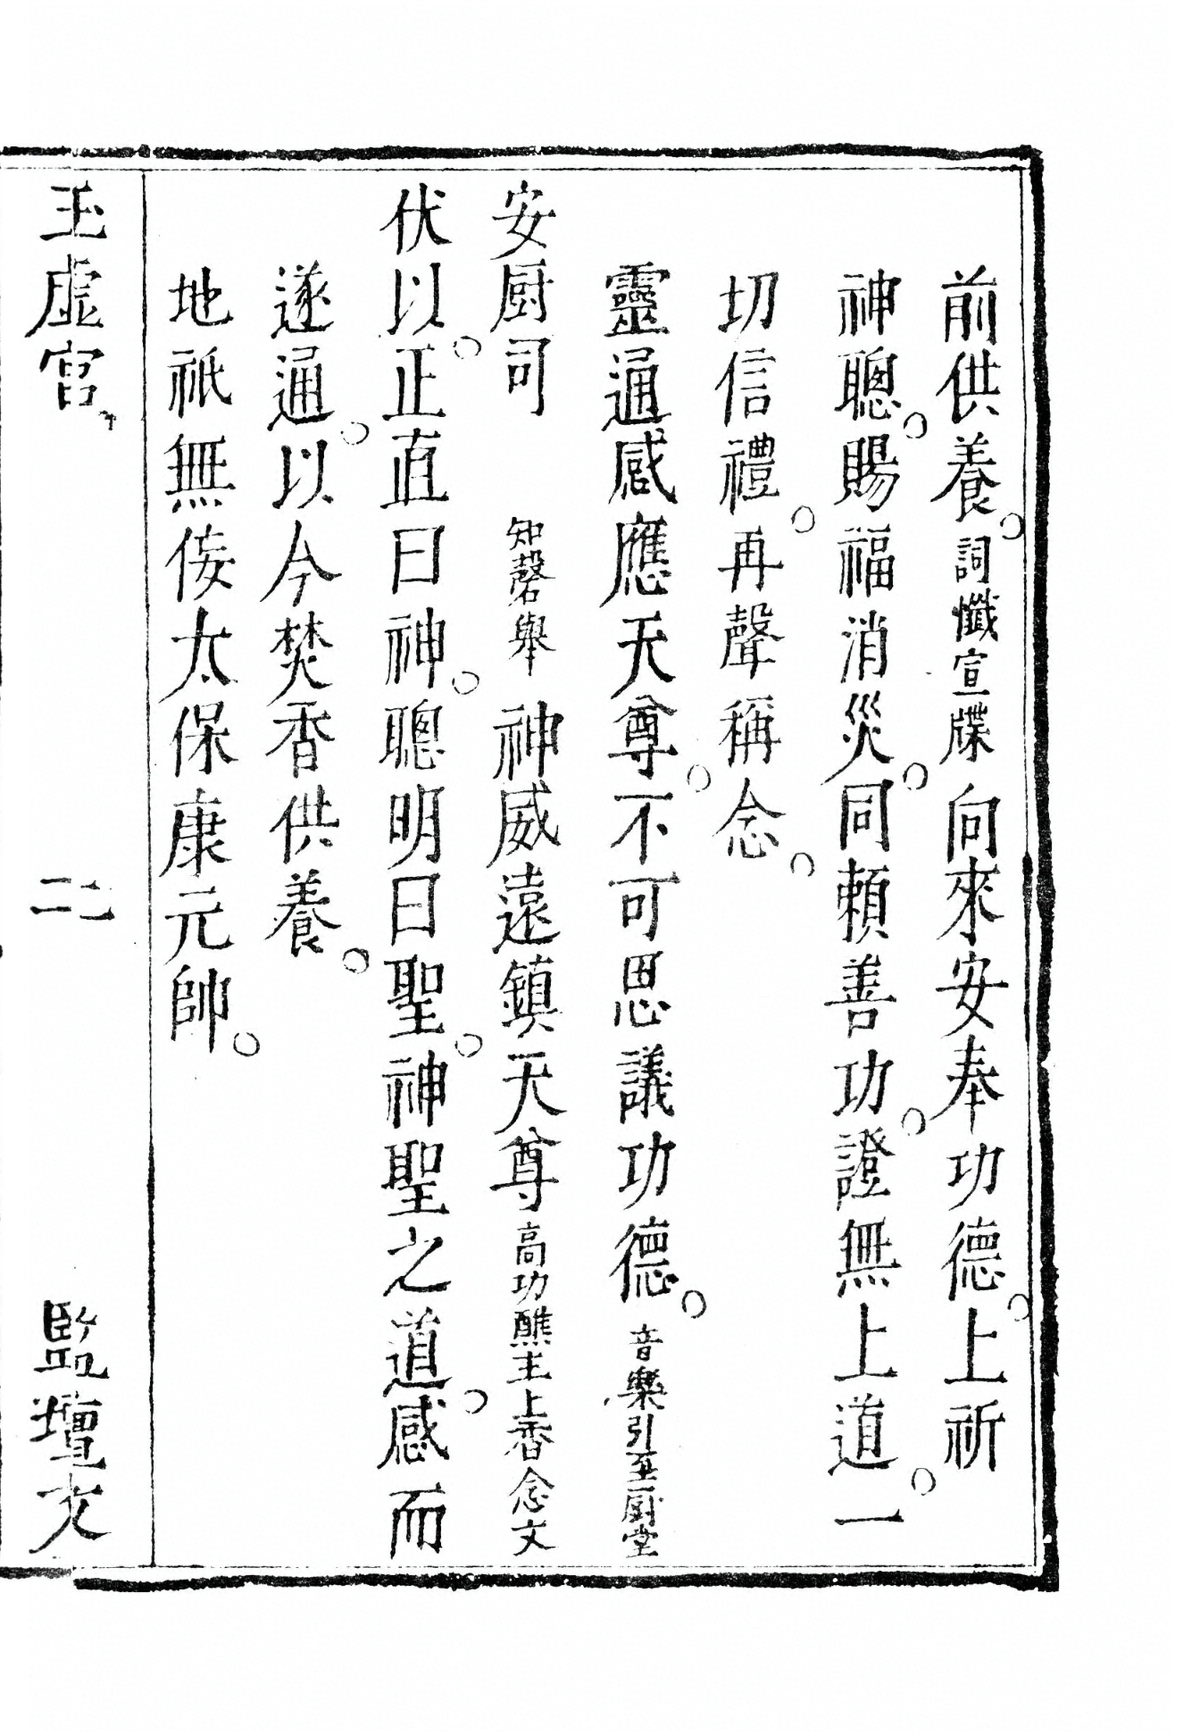 前供養。詞懺宣牒向來安奉功德。上祈
神聰。賜福消災。同賴善功。證無上道。一
切信禮。再聲稱念。
靈通感應天尊。不可思議功德。音樂引至厨堂
安厨司 知磬舉 神威遠鎮天尊高功醮主上香念文
伏以。正直曰神。聰明曰聖。神聖之道。感而
遂通。以今焚香供養。
地祇無侫太保康元帥。
玉虛宫 二 監壇文